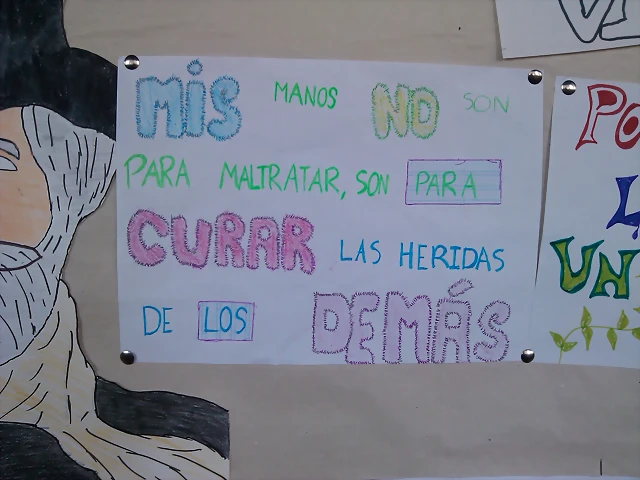 MIS MANOS NO SON
PARA MALTRATAR, SON PARA
CURAR LAS HERIDAS
DE LOS DEMÁS
UN